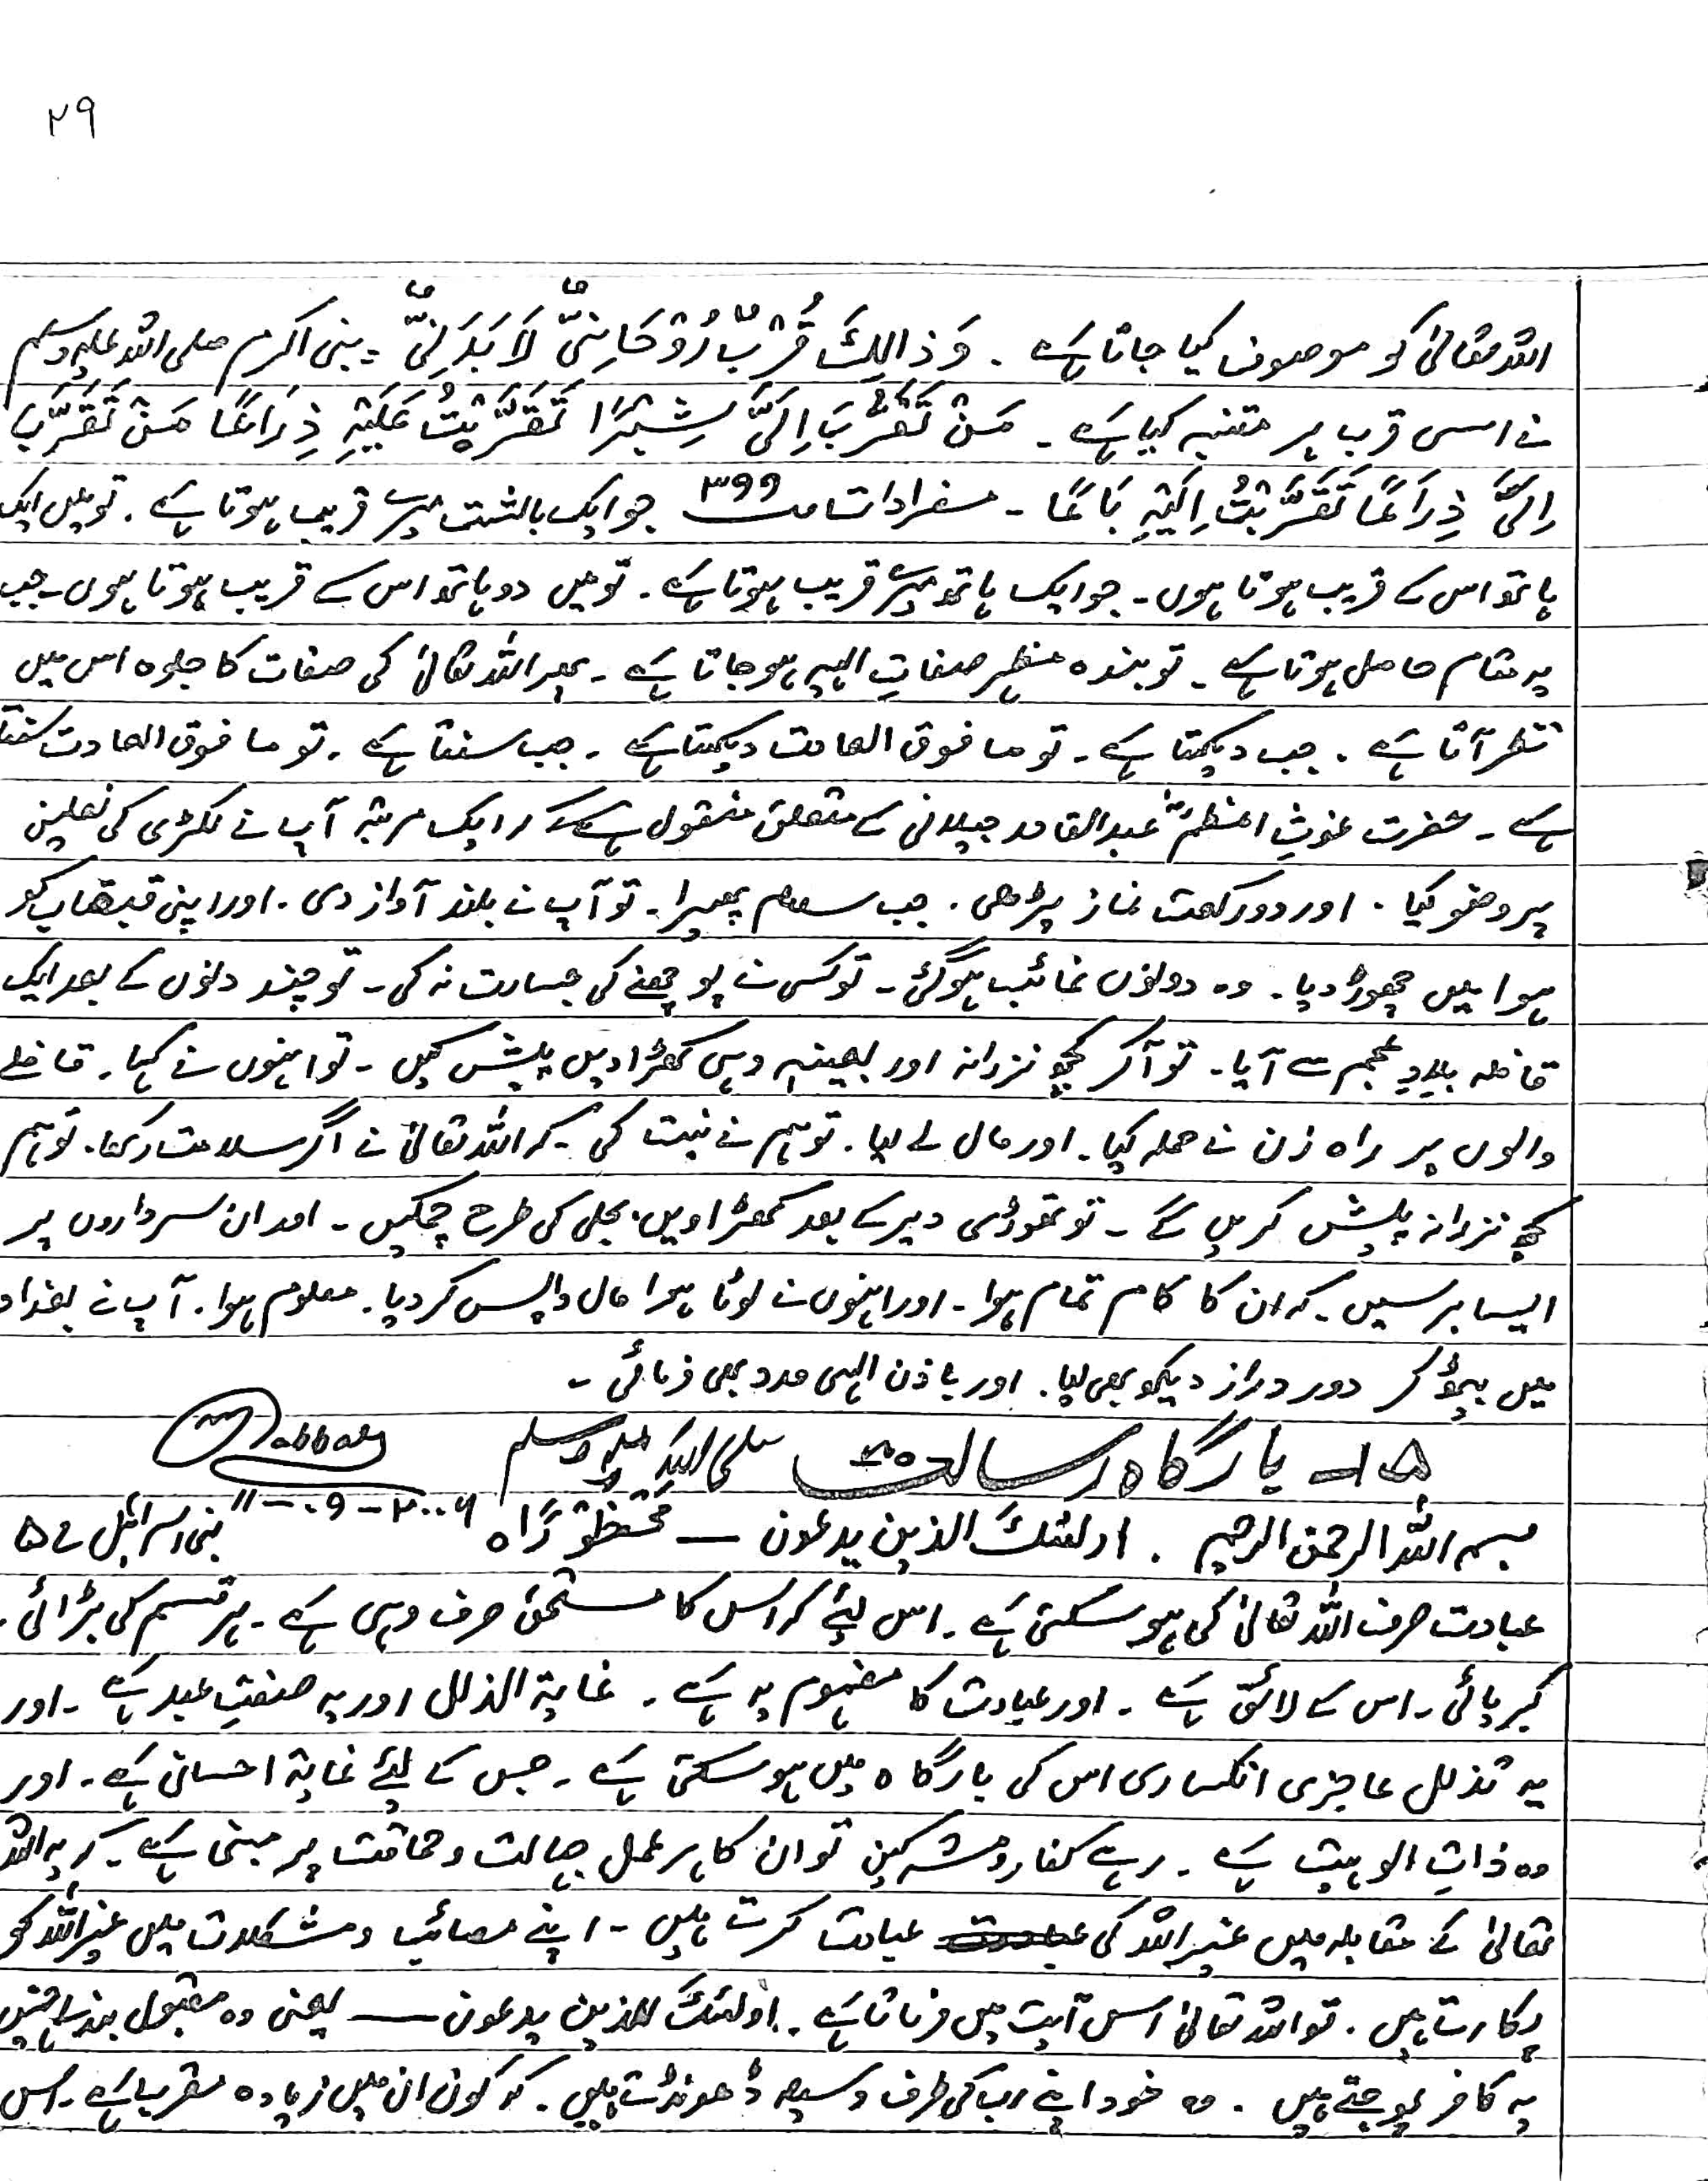 ۲۹
اللہ تعالیٰ کو موصوف کیا جاتا ہے ۔ وَ ذَالِکَ قُرْبٌ رُوْحَانِیٌّ لَا بَدَنِیٌّ ۔ نبی اکرم صلی اللہ علیہ وسلم
نے اسی قرب پر متنبہ کیا ہے ۔ مَنْ تَقَرَّبَ اِلَیَّ شِبْرًا تَقَرَّبْتُ عَلَیْہِ ذِرَاعًا مَنْ تَقَرَّبَ
اِلَیَّ ذِرَاعًا تَقَرَّبْتُ اِلَیْہِ بَاعًا ۔ مفرادات ص ۳۹۹ جو ایک بالشت میرے قریب ہوتا ہے ۔ تو میں ایک
ہاتھ اس کے قریب ہوتا ہوں ۔ جو ایک ہاتھ میرے قریب ہوتا ہے ۔ تو میں دو ہاتھ اس کے قریب ہوتا ہوں ۔ جب
یہ مقام حاصل ہوتا ہے ۔ تو بندہ مظہر صفاتِ الہیہ ہو جاتا ہے ۔ پھر اللہ تعالیٰ کی صفات کا جلوہ اس میں
نظر آتا ہے ۔ جب دیکھتا ہے ۔ تو ما فوق العادت دیکھتا ہے ۔ جب سنتا ہے ۔ تو ما فوق العادت سنتا
ہے ۔ حضرت غوثِ اعظم عبد القادر جیلانی کے متعلق منقول ہے کہ ایک مرتبہ آپ نے لکڑی کی نعلین
پر وضو کیا ۔ اور دو رکعت نماز پڑھی ۔ جب سلام پھیرا ۔ تو آپ نے بلند آواز دی ۔ اور اپنی قبقاب کو
ہوا میں چھوڑ دیا ۔ وہ دونوں غائب ہو گئی ۔ تو کسی نے پوچھنے کی جسارت نہ کی ۔ تو چند دنوں کے بعد ایک
قافلہ بلادِ عجم سے آیا ۔ تو آکر کچھ نزرانہ اور بعینہ وہی کھڑاویں پیش کیں ۔ تو انہوں نے کہا ۔ قافلے
والوں پر راہ زن نے حملہ کیا ۔ اور مال لے لیا ۔ تو ہم نے نیت کی ۔ کہ اللہ تعالیٰ نے اگر سلامت رکھا ۔ تو ہم
کچھ نزرانہ پیش کریں گے ۔ تو تھوڑی دیر کے بعد کھڑاویں بجلی کی طرح چمکیں ۔ اور ان سرداروں پر
ایسا برسیں ۔ کہ ان کا کام تمام ہوا ۔ اور انہوں نے لوٹا ہوا مال واپس کر دیا ۔ معلوم ہوا ۔ آپ نے بغداد
میں بیٹھ کر دور دراز دیکھ بھی لیا ۔ اور باذن الہی مدد بھی فرمائی ۔
۱۵ ۔ بارگاہ رسالت صلی اللہ علیہ وسلم
۱۱-۰۹-۲۰۰۶
بسم اللہ الرحمن الرحیم ۔ اولئک الذین یدعون — مَحْظُوْرًا ۵ بنی اسرائیل ۵
عبادت صرف اللہ تعالیٰ کی ہو سکتی ہے ۔ اس لیئے کہ اس کا مستحق صرف وہی ہے ۔ ہر قسم کی بڑائی ۔
کبریائی ۔ اس کے لائق ہے ۔ اور عبادت کا مفہوم یہ ہے ۔ غایۃ الذلل اور یہ صفتِ عبد ہے ۔ اور
یہ تذلل عاجزی انکساری اس کی بارگاہ میں ہو سکتی ہے ۔ جس کے لیئے غایۃ احسان ہے ۔ اور
وہ ذاتِ الوہیت ہے ۔ رہے کفار و مشرکین تو ان کا ہر عمل جہالت و حماقت پر مبنی ہے ۔ کہ یہ اللہ
تعالیٰ کے مقابلہ میں غیر اللہ کی عبادت کرتے ہیں ۔ اپنے مصائب و مشکلات میں غیر اللہ کو
پکارتے ہیں ۔ تو اللہ تعالیٰ اس آیت میں فرماتا ہے ۔ اولئک الذین یدعون — یعنی وہ مقبول بندے جنہیں
یہ کافر پوجتے ہیں ۔ وہ خود اپنے رب کی طرف وسیلہ ڈھونڈتے ہیں ۔ کہ کون ان میں زیادہ مقرب ہے ۔ اس